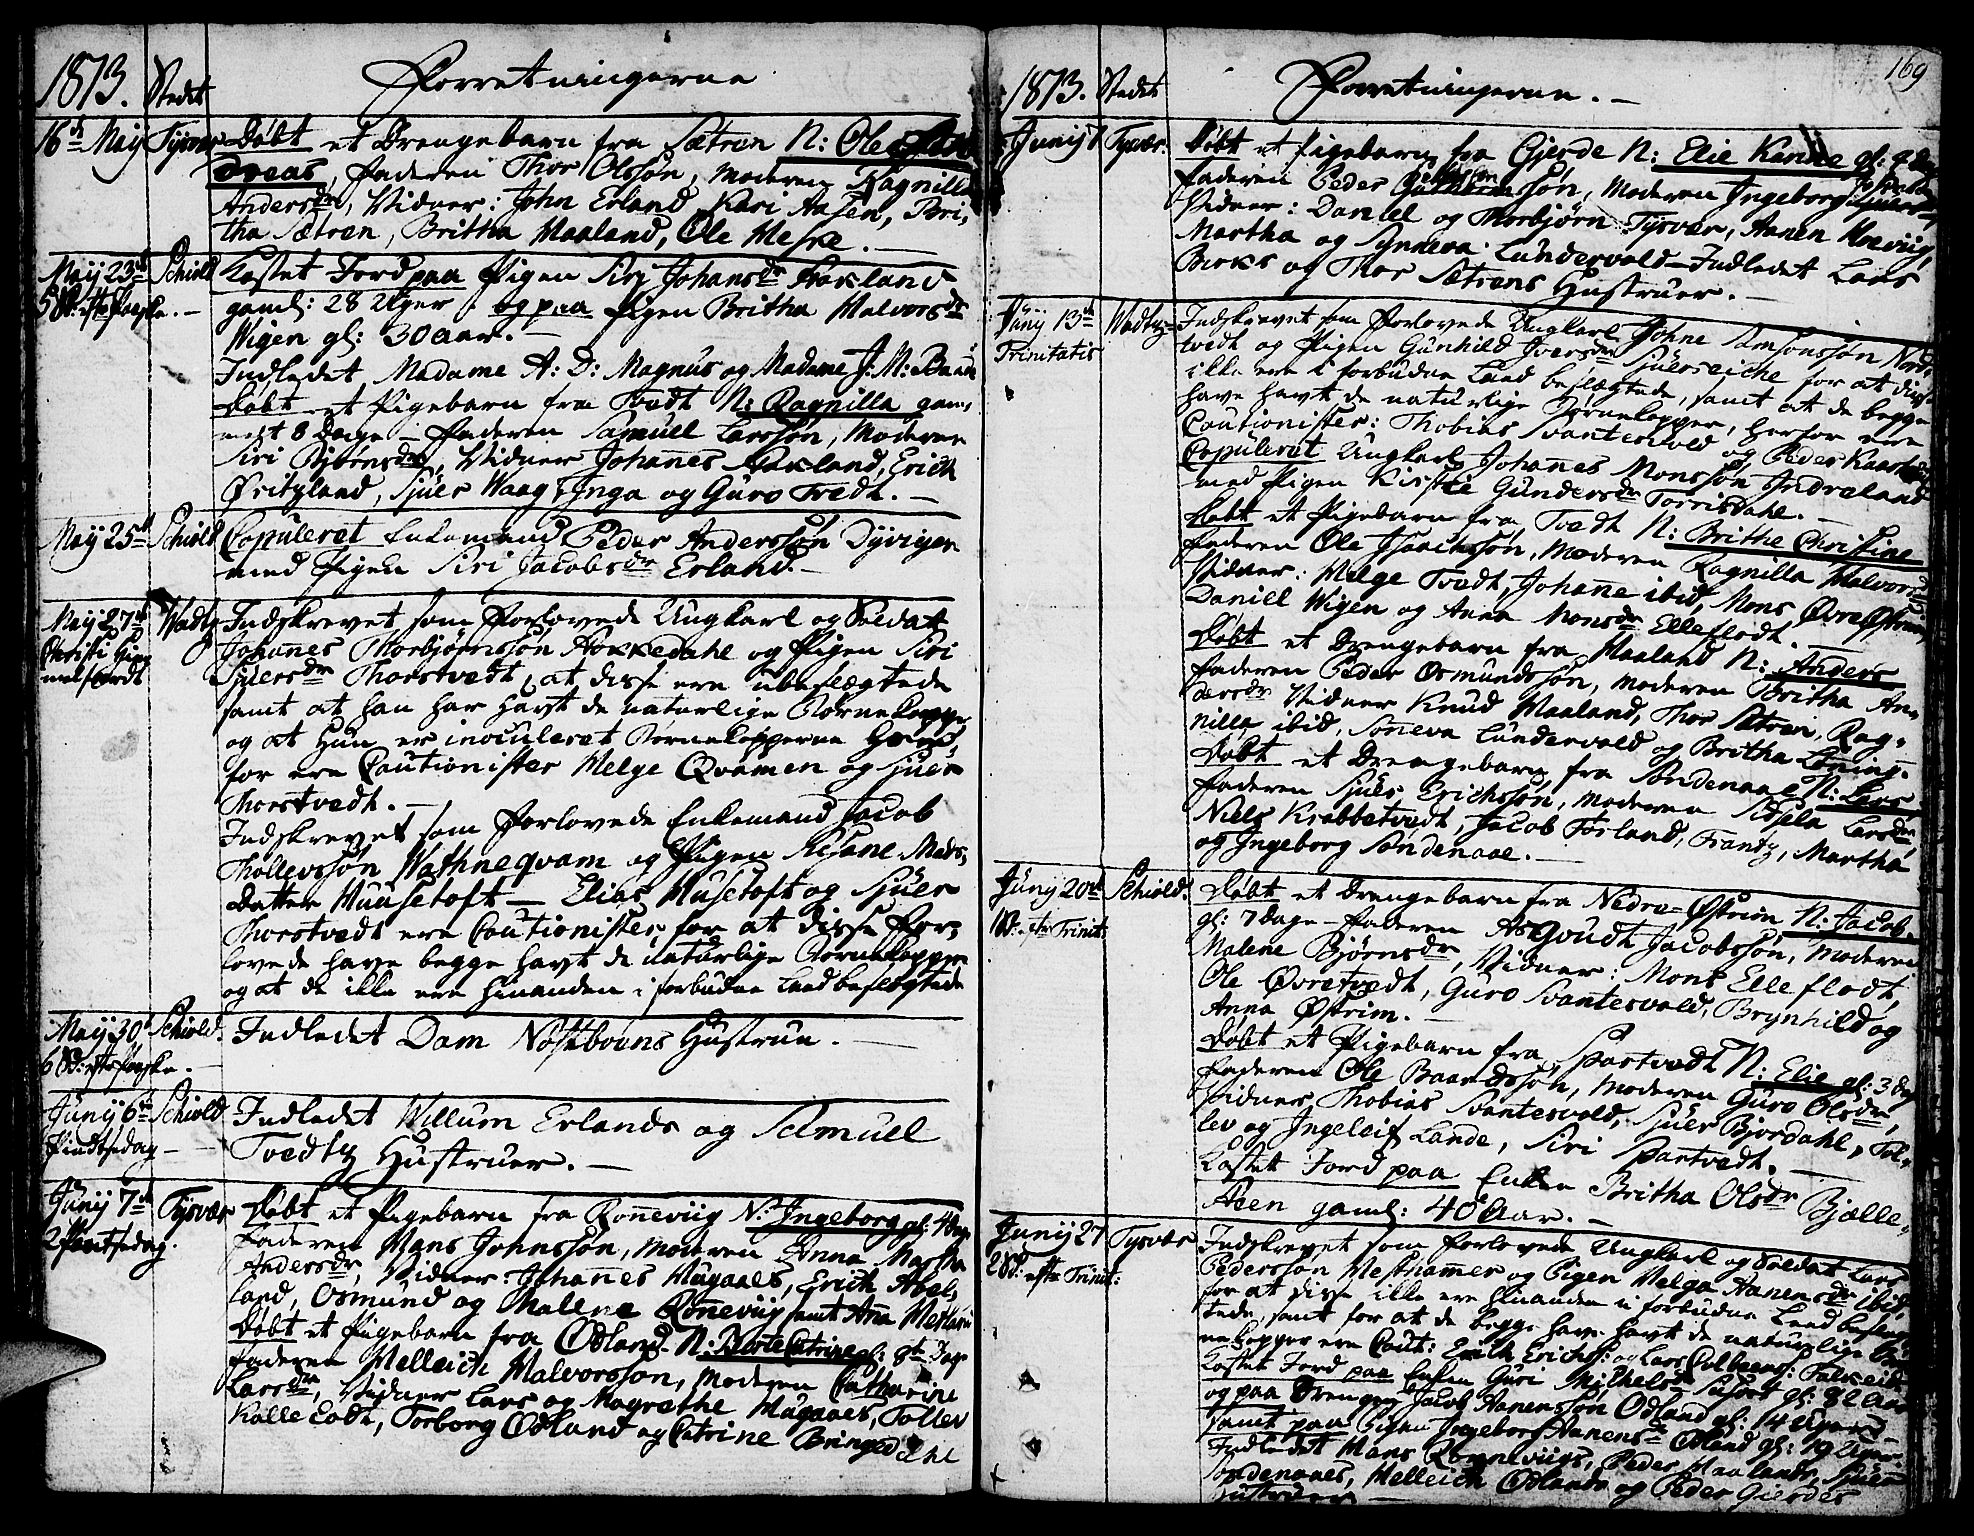 1813. Stedet Forretningerne
16de May Tysvær Døbt et Drengebarn fra Sætren N: Ole An-
dreas, Faderen Thor Olssøn, Moderen Ragnilla
Andersdr, Vidner: John Erland, Kari Aasen, Bri-
tha Sætren, Britha Maaland, Ole Meske. —
May 23de Schiold Kastet Jord paa Pigen Siri Johansdr Aarland
5 S: efter Paaske. — gaml: 28 Uger og paa Pigen Britha Halvorsdr
Wigen gl: 30 aar. —
Indledet Madame A: D: Magnus og Madame J. M: Baun
Døbt et Pigebarn fra Tvedt N: Ragnilla gam-
melt 8 Dage — Faderen Samuel Larssøn, Moderen
Siri Bjørnsdr, Vidner Johannes Aarland, Erich
Øritzland, Sjuer Waag, Inga og Guro Tvedt. —
May 25de Schiold Copuleret Enkemand Peder Anderssøn Dyvigen
med Pigen Siri Jacobsdr Erland. —
May 27de Wadtz Indskrevet som Forlovede Ungkarl og Soldat
Christi Him- Johannes Thorbjørnssøn Aokkedahl og Pigen Siri
melfardt Sjuersdr Thorstvedt, at disse ere ubeslægtede
samt at han har havt de naturlige Børnekopper
og at Hun er inoculeret Børnekopperne Her-
for ere Cautionister Helge Qvamen og Sjuer
Thorstvedt. —
Indskrevet som Forlovede Enkemand Jacob
Thollevssøn Wathneqvam og Pigen Susane Mads-
Datter Huusetoft — Elias Husetoft og Sjuer
Thorstvedt ere Cautionister, for at disse For-
lovede have begge havt de naturlige Børnekopper
og at de ikke ere hinanden i forbudne Leed beslægtede
May 30te Schiold. Indledet Dam Nøstbøuns Hustrue. —
6 S: efter Paaske. —
Juny 6te Schiold Indledet Willum Erlands og Samuel
Pindtsedag — Tvedtz Hustruer. —
Juny 7de Tysvær Døbt et Pigebarn fra Rønneviig N: Ingeborg gl: 4 Dage
2 Pintsedag. Faderen Hans Johnssøn, Moderen Anna Martha
Andersdr, Vidner: Johannes Hugaaes, Erich Abel-
land, Osmund og Malene Rønneviig samt Anna
Døbt et Pigebarn fra Odland N: Catrine gl: 8te Dage
Faderen Helleich Halvorssøn, Moderen Catharine
Larsdr, Vidner Lars og Magrethe Hugaaes, Tollev
Kalle Lodt, Torborg Odland og Catrine Bringed
dahl
169
1813. Stedet Forretningerne. —
Junij 7 Tysvær. Døbt et Pigebarn fra Gjerde N: Elie Karine gl: 4 Dage
Faderen Peder, Moderen Ingeborg
Vidner: Daniel og Thorbjørn Tysvær, Aanen Hoeviig,
Martha og Synneva Lundervold — Indledet Lars
Birks og Thor Sætrens Hustruer. —
Juny 13de Wadtz Indskrevet som Forlovede Ungkarl Johne Simonssøn Nord-
Trinitatis tvedt og Pigen Gunhild Iversdr Sjuerseiche for at disse
ikke ere i forbudne Leed beslægtede, samt at de begge
have havt de naturlige Børnekopper, herfor ere
Cautionister: Thobias Svantesvold og Peder Kaarhuus
Copuleret Ungkarl Johannes Monssøn Indreland
med Pigen Kirstie Gundersdr Torrisdahl. —
Døbt et Pigebarn fra Tvedt N: Brithe Christine
Faderen Ole Isaachssøn, Moderen Ragnilla Halvorsdr
Vidner: Helge Tvedt, Johane ibid, Mons Øvre Østrim,
Daniel Wigen og Anna Monsdr Elleflodt. —
Døbt et Drengebarn fra Maaland N: Anders
Faderen Peder Osmundssøn, Moderen Britha An-
dersdr Vidner Knud Maaland, Thor Sætren, Rag-
nilla ibid, Sønneva Lundervold og Britha Løning.
Døbt et Drengebarn fra Søndenaae N: Lars
Faderen Sjuer Erichssøn, Moderen Sissela Larsdr
Niels Krabbetvedt, Jacob Førland, Frantz, Martha
og Ingeborg Søndenaae. —
Juny 20de Schiold. Døbt et Drengebarn fra Nedre-Østrim N: Jacob.
1 S: efter Trinit: gl: 7 Dage — Faderen Asgoudt Jacobssøn, Moderen
Malene Bjørnsdr, Vidner: Mons Elleflodt,
Ole Øvretvedt, Guro Svantesvold, Brynhild og
Anna Østrim. —
Døbt et Pigebarn fra Spartvedt N: Elie gl: 3 Dage
Faderen Ole Baardssøn, Moderen Guro Olsdr,
Vidner Thobias Svantesvold, Sjuer Bjordahl, Tol-
lev og Ingeleif Lande, Siri Spartvedt. —
Kastet Jord paa Enken Britha Olsdr Bjelle-
steen gaml: 40 Aar. —
Junij 27 Tysvær Indskrevet som Forlovede Ungkarl og Soldat Lars
2 S: efter Trinit: Pederssøn Vesthammer og Pigen Helga Aanensdr ibid,
for at disse ikke ere hinanden i forbudne Leed beslæg-
tede, samt for at de begge have havt de naturlige Bør-
nekopper ere Caut: Erich Erichs: og Lars Colbens: Falkeide
Kastet Jord paa Enken Guri Michelsdr gl: 82 Aar
og paa Drengen Jacob Aanenssøn Odland gl: 14 Uger
samt paa Pigen Ingeborg Aanensdr Odland gl: 19 Uger
Indledet Hans Rønneviigs, Peder Maalands, Sjuer
Søndenaaes, Helleich Odlands og Peder Gierdes
Hustruer —